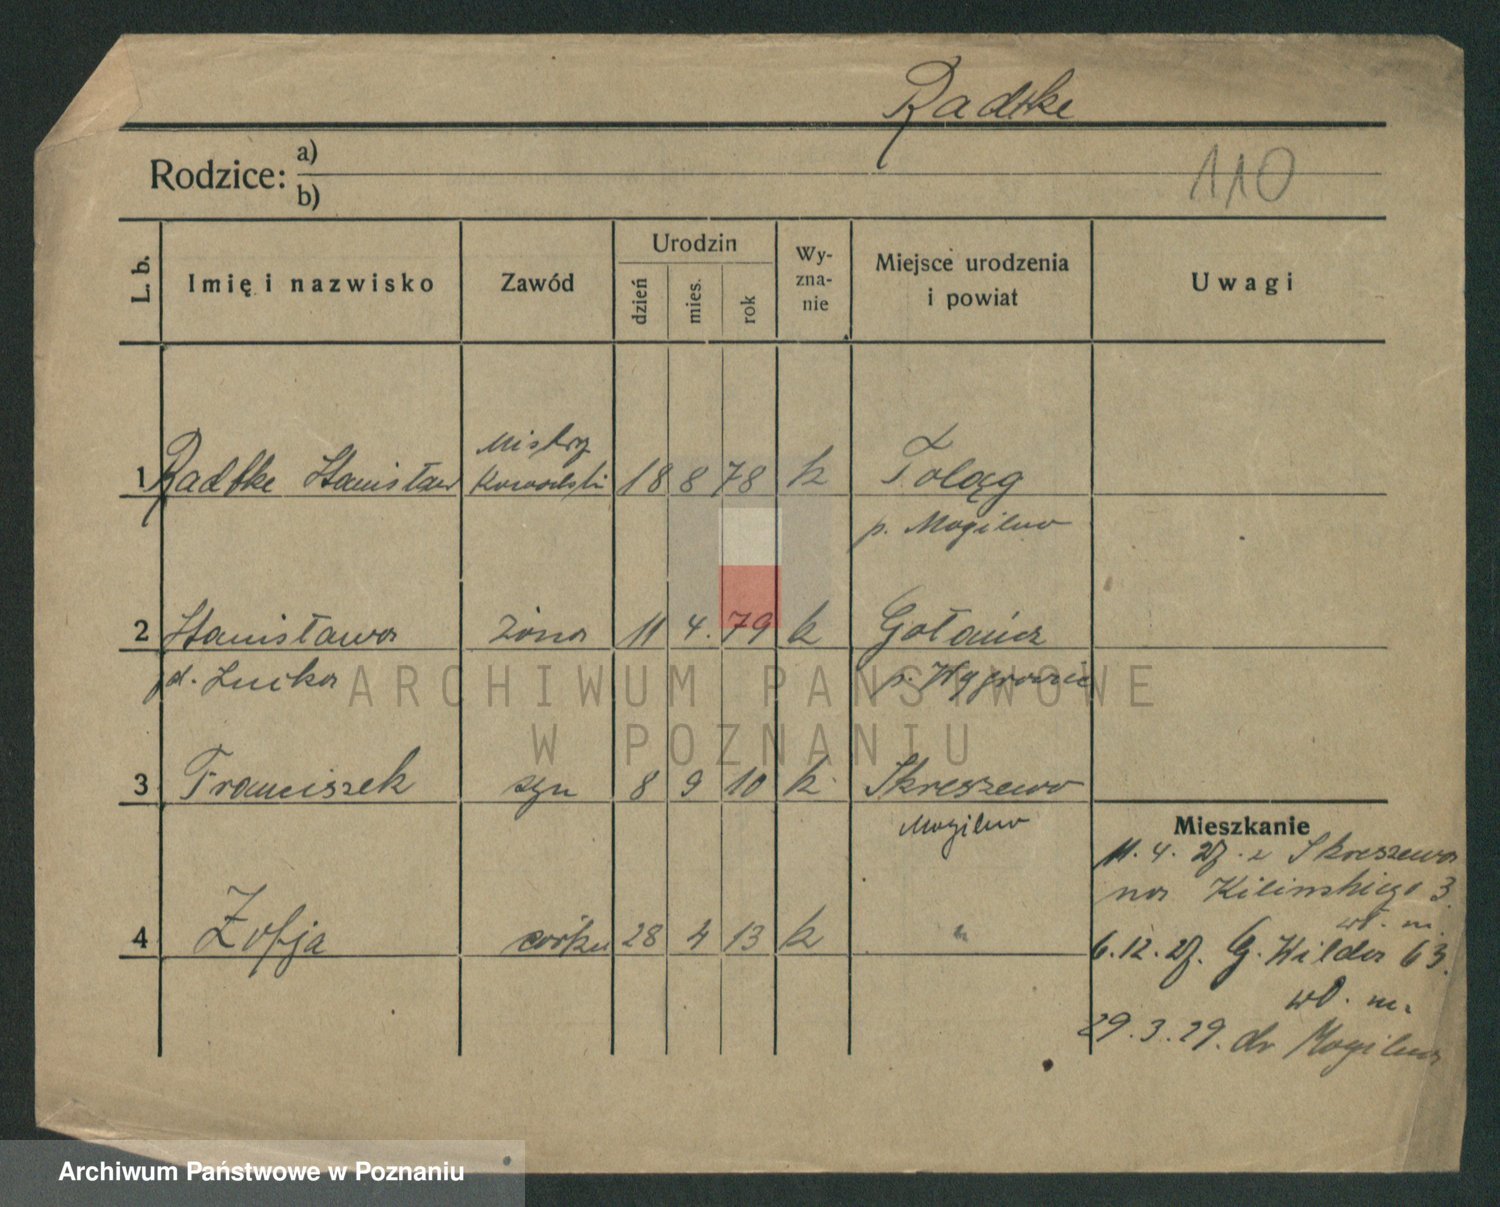 Radtke
110
Rodzice: a)
b)
L. b. Imię i nazwisko Zawód Urodzin dzień mies. rok Wy-zna-nie Miejsce urodzenia i powiat Uwagi
Mistrz
1 Radtke Stanisław Kowalski 18 8 78 k Toląg
p. Mogilno
2 Stanisława żona 11 4. 79 k Gołańcz
d. Znika p. Wągrowiec
ARCHIWUM PAŃSTWOWE
W POZNANIU
3 Franciszek syn 8 9 10 k Skreszewo
Mogilno
Mieszkanie
11. 4. 27. z Skreszewa
na Kilinskiego 3.
wł. m.
4 Zofja córka 28 4 13 k "
6. 12. 27. G. Wilda 63.
wł. m.
29. 3. 29. do Mogilna
Archiwum Państwowe w Poznaniu